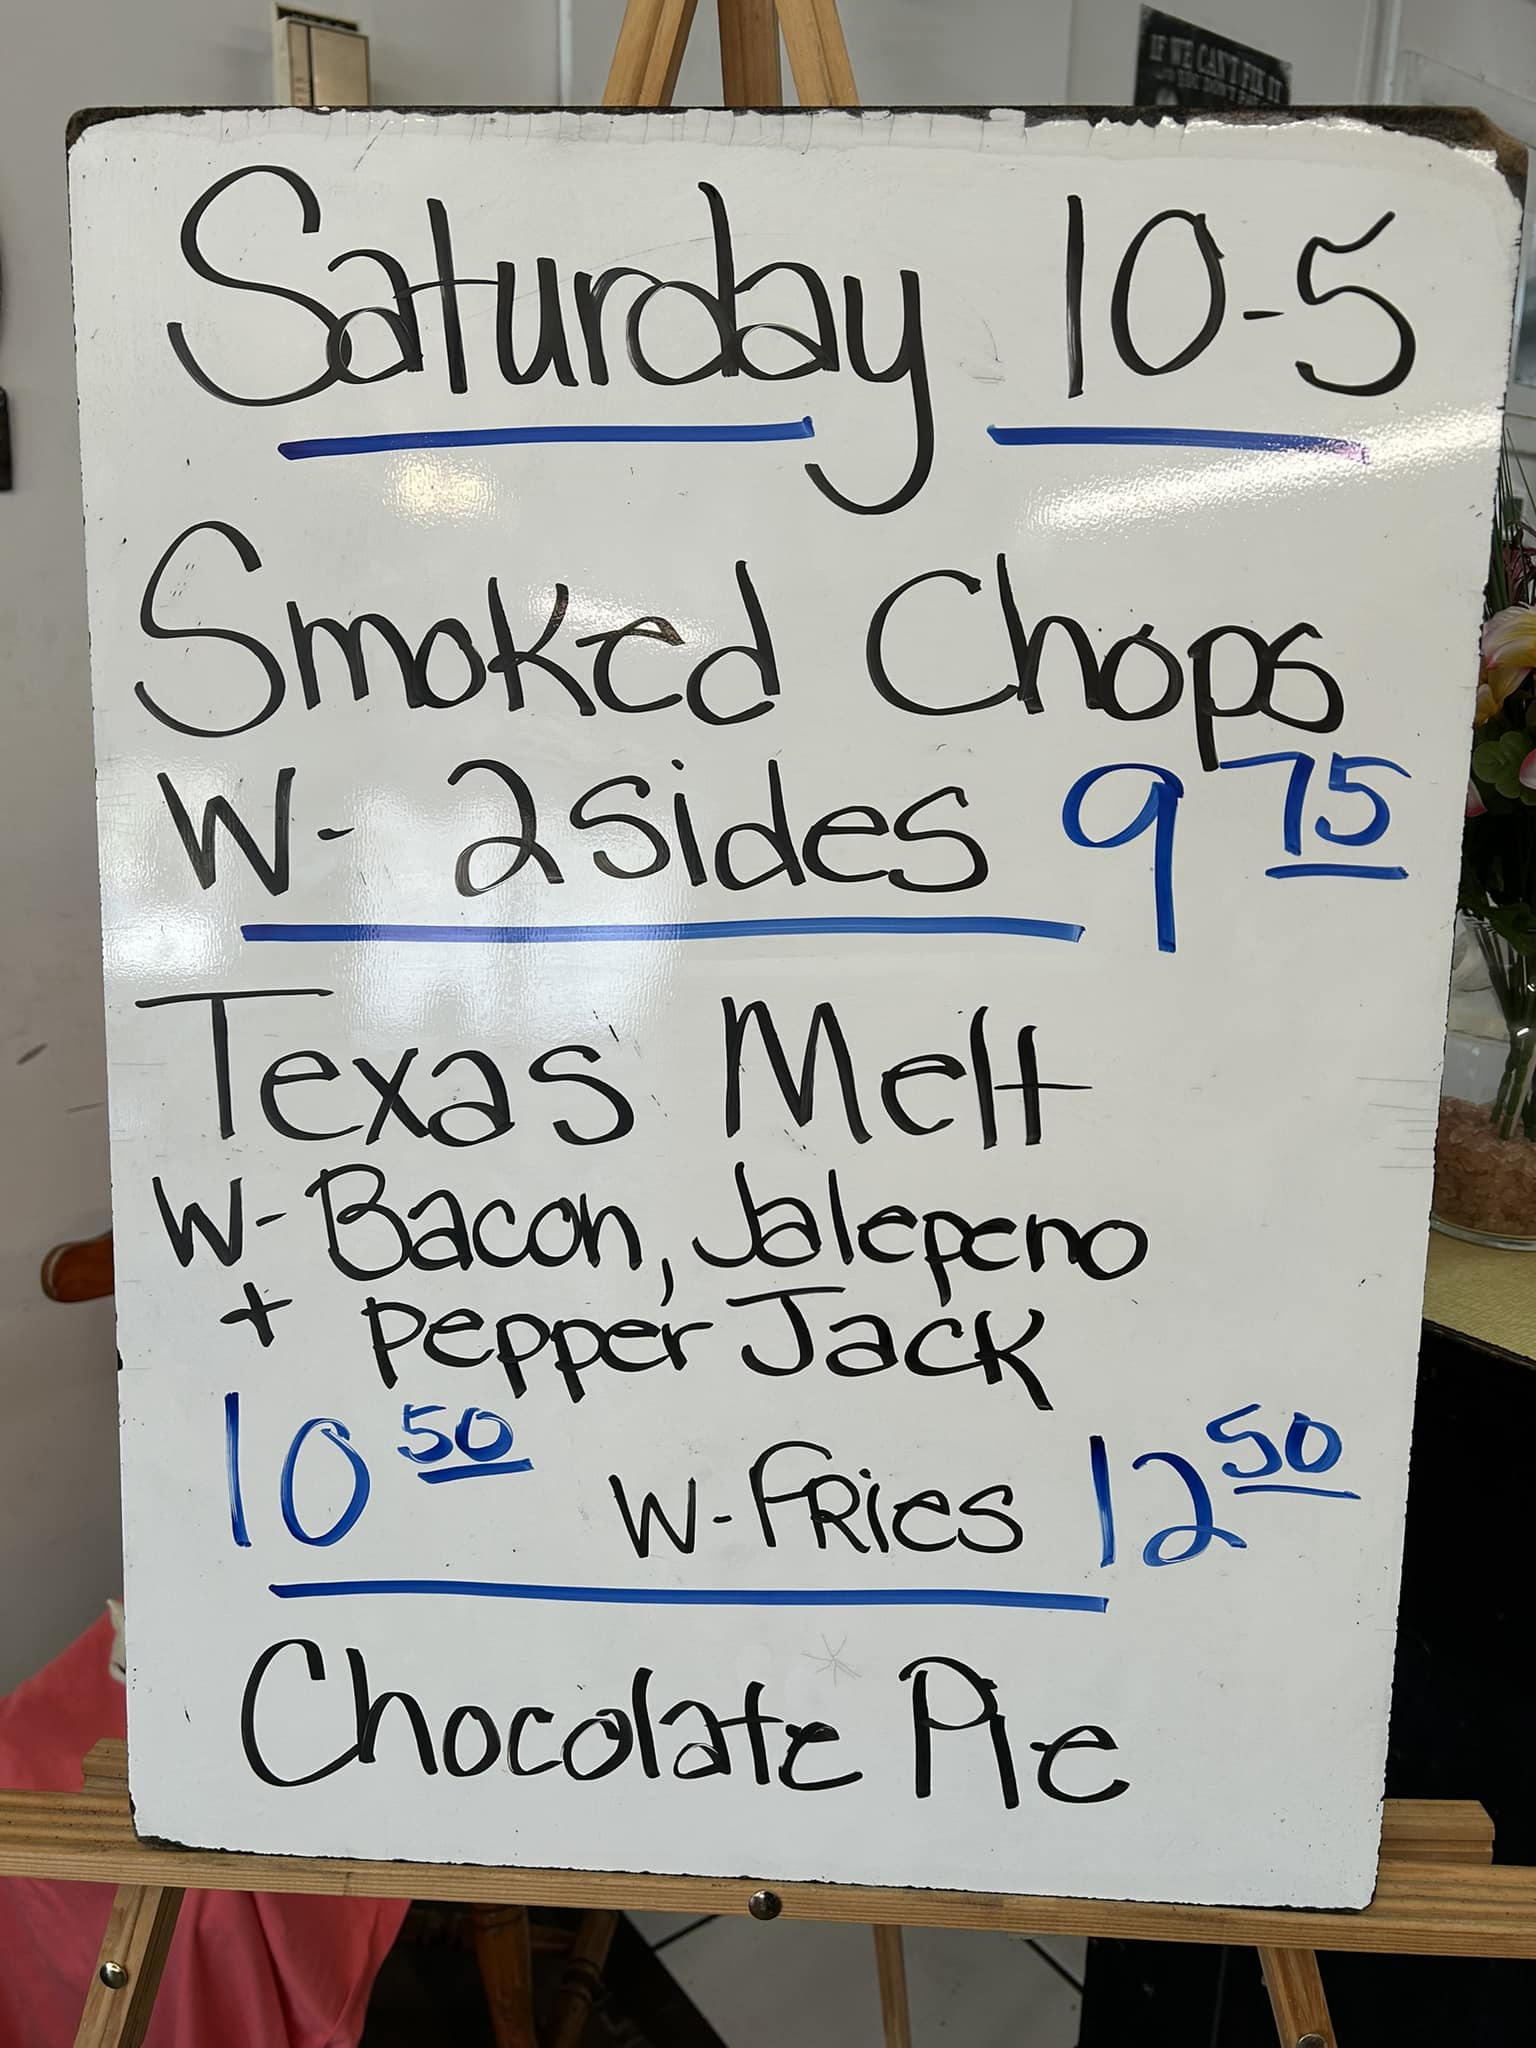 IF WE CAN'T FIX IT
Saturday 10-5
Smoked Chops
W- 2 sides 9 75
Texas Melt
W- Bacon, Jalepeno
+ Pepper Jack
10 50 W- FRies 12 50
Chocolate Pie